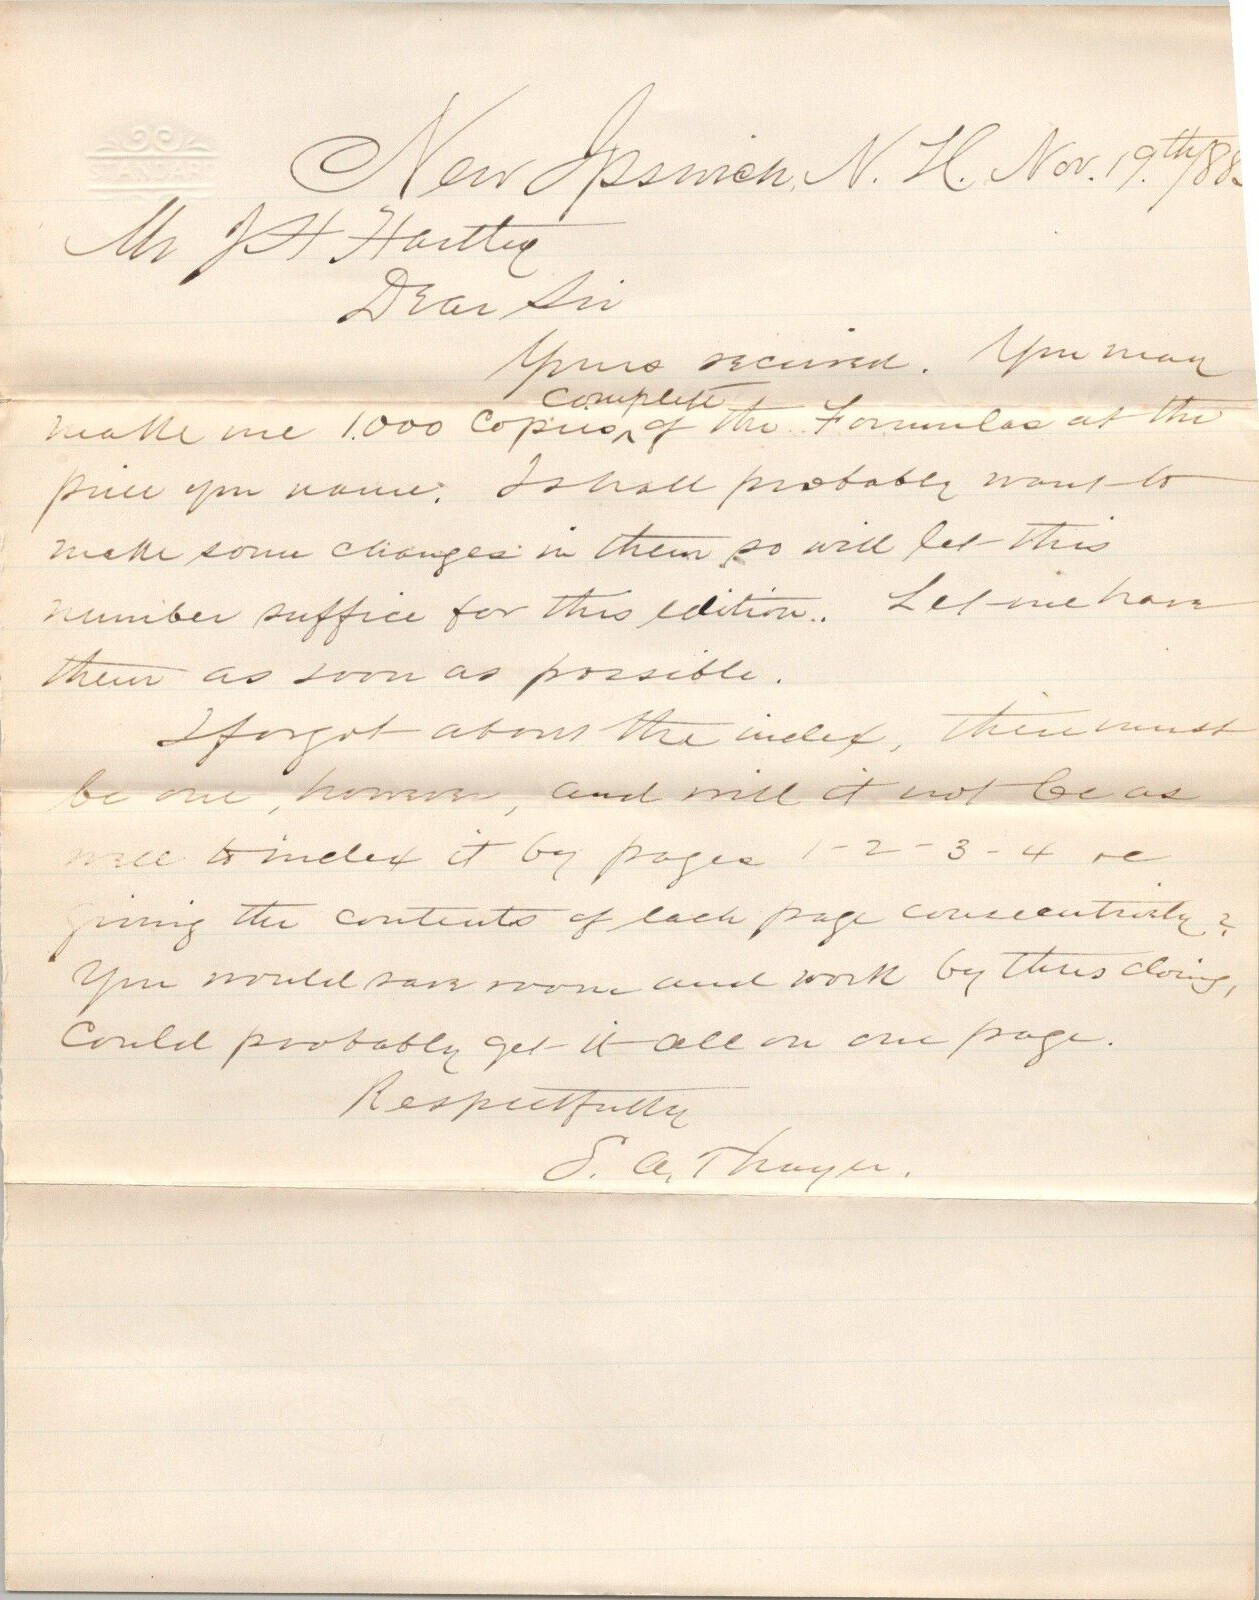 STANDARD
New Ipswich, N. H. Nov. 19.th/88
Mr J H
Dear Sir
Yours received. You may
complete
make me 1.000 copies ‸ of the Formulas at the
price you name. I shall probably want to
make some changes in them so will let this
number suffice for this edition.. Let me have
them as soon as possible.
I forgot about the index, there must
be one, however, and will it not be as
well to index it by pages 1-2-3-4 &c
giving the contents of each page consecutively?
You would save room and work by thus doing,
Could probably get it all on one page.
Respectfully
S. A. Thayer.